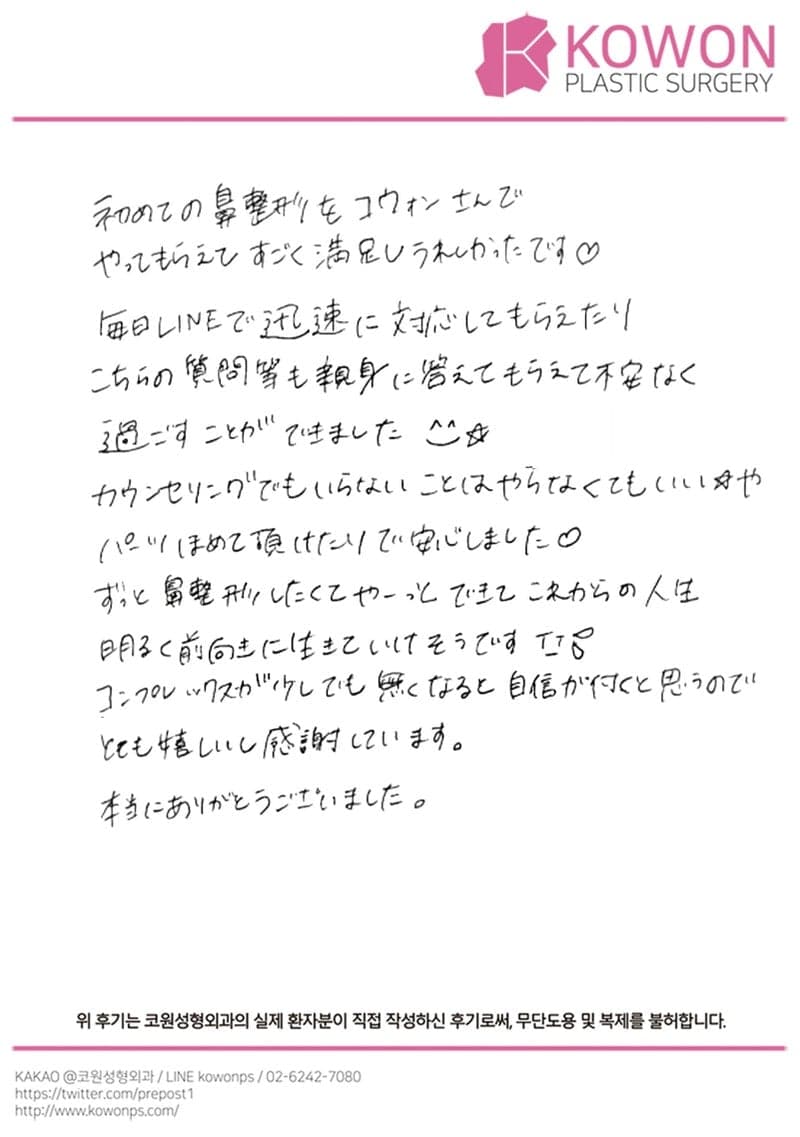 KOWON
PLASTIC SURGERY
初めての鼻整形をコウォンさんで
やってもらえて すごく満足しうれしかったです♡
毎日LINEで迅速に対応してもらえたり
こちらの質問等も親身に答えてもらえて不安なく
過ごすことができました ^^☆
カウンセリングでもいらないことはやらなくてもいい☆や
パーツほめて頂けたりで安心しました♡
ずっと鼻整形したくてやーっとできてこれからの人生
明るく前向きに生きていけそうです
コンプレックスが少しでも無くなると自信が付くと思うので
とても嬉しいし感謝しています。
本当にありがとうございました。
위 후기는 코원성형외과의 실제 환자분이 직접 작성하신 후기로써, 무단도용 및 복제를 불허합니다.
KAKAO @코원성형외과 / LINE kowonps / 02-6242-7080
https://twitter.com/prepost1
http://www.kowonps.com/